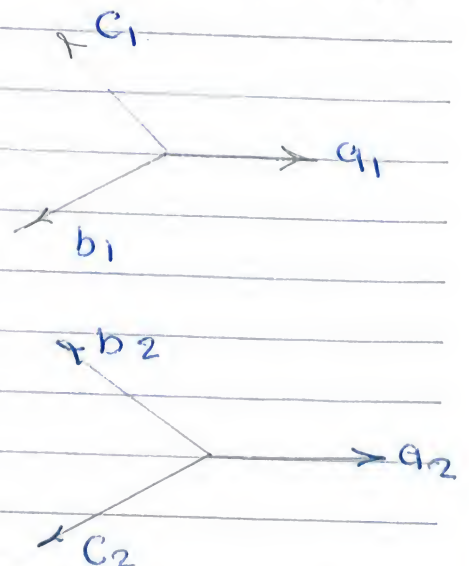 C1
a1
b1
b2
a2
C2